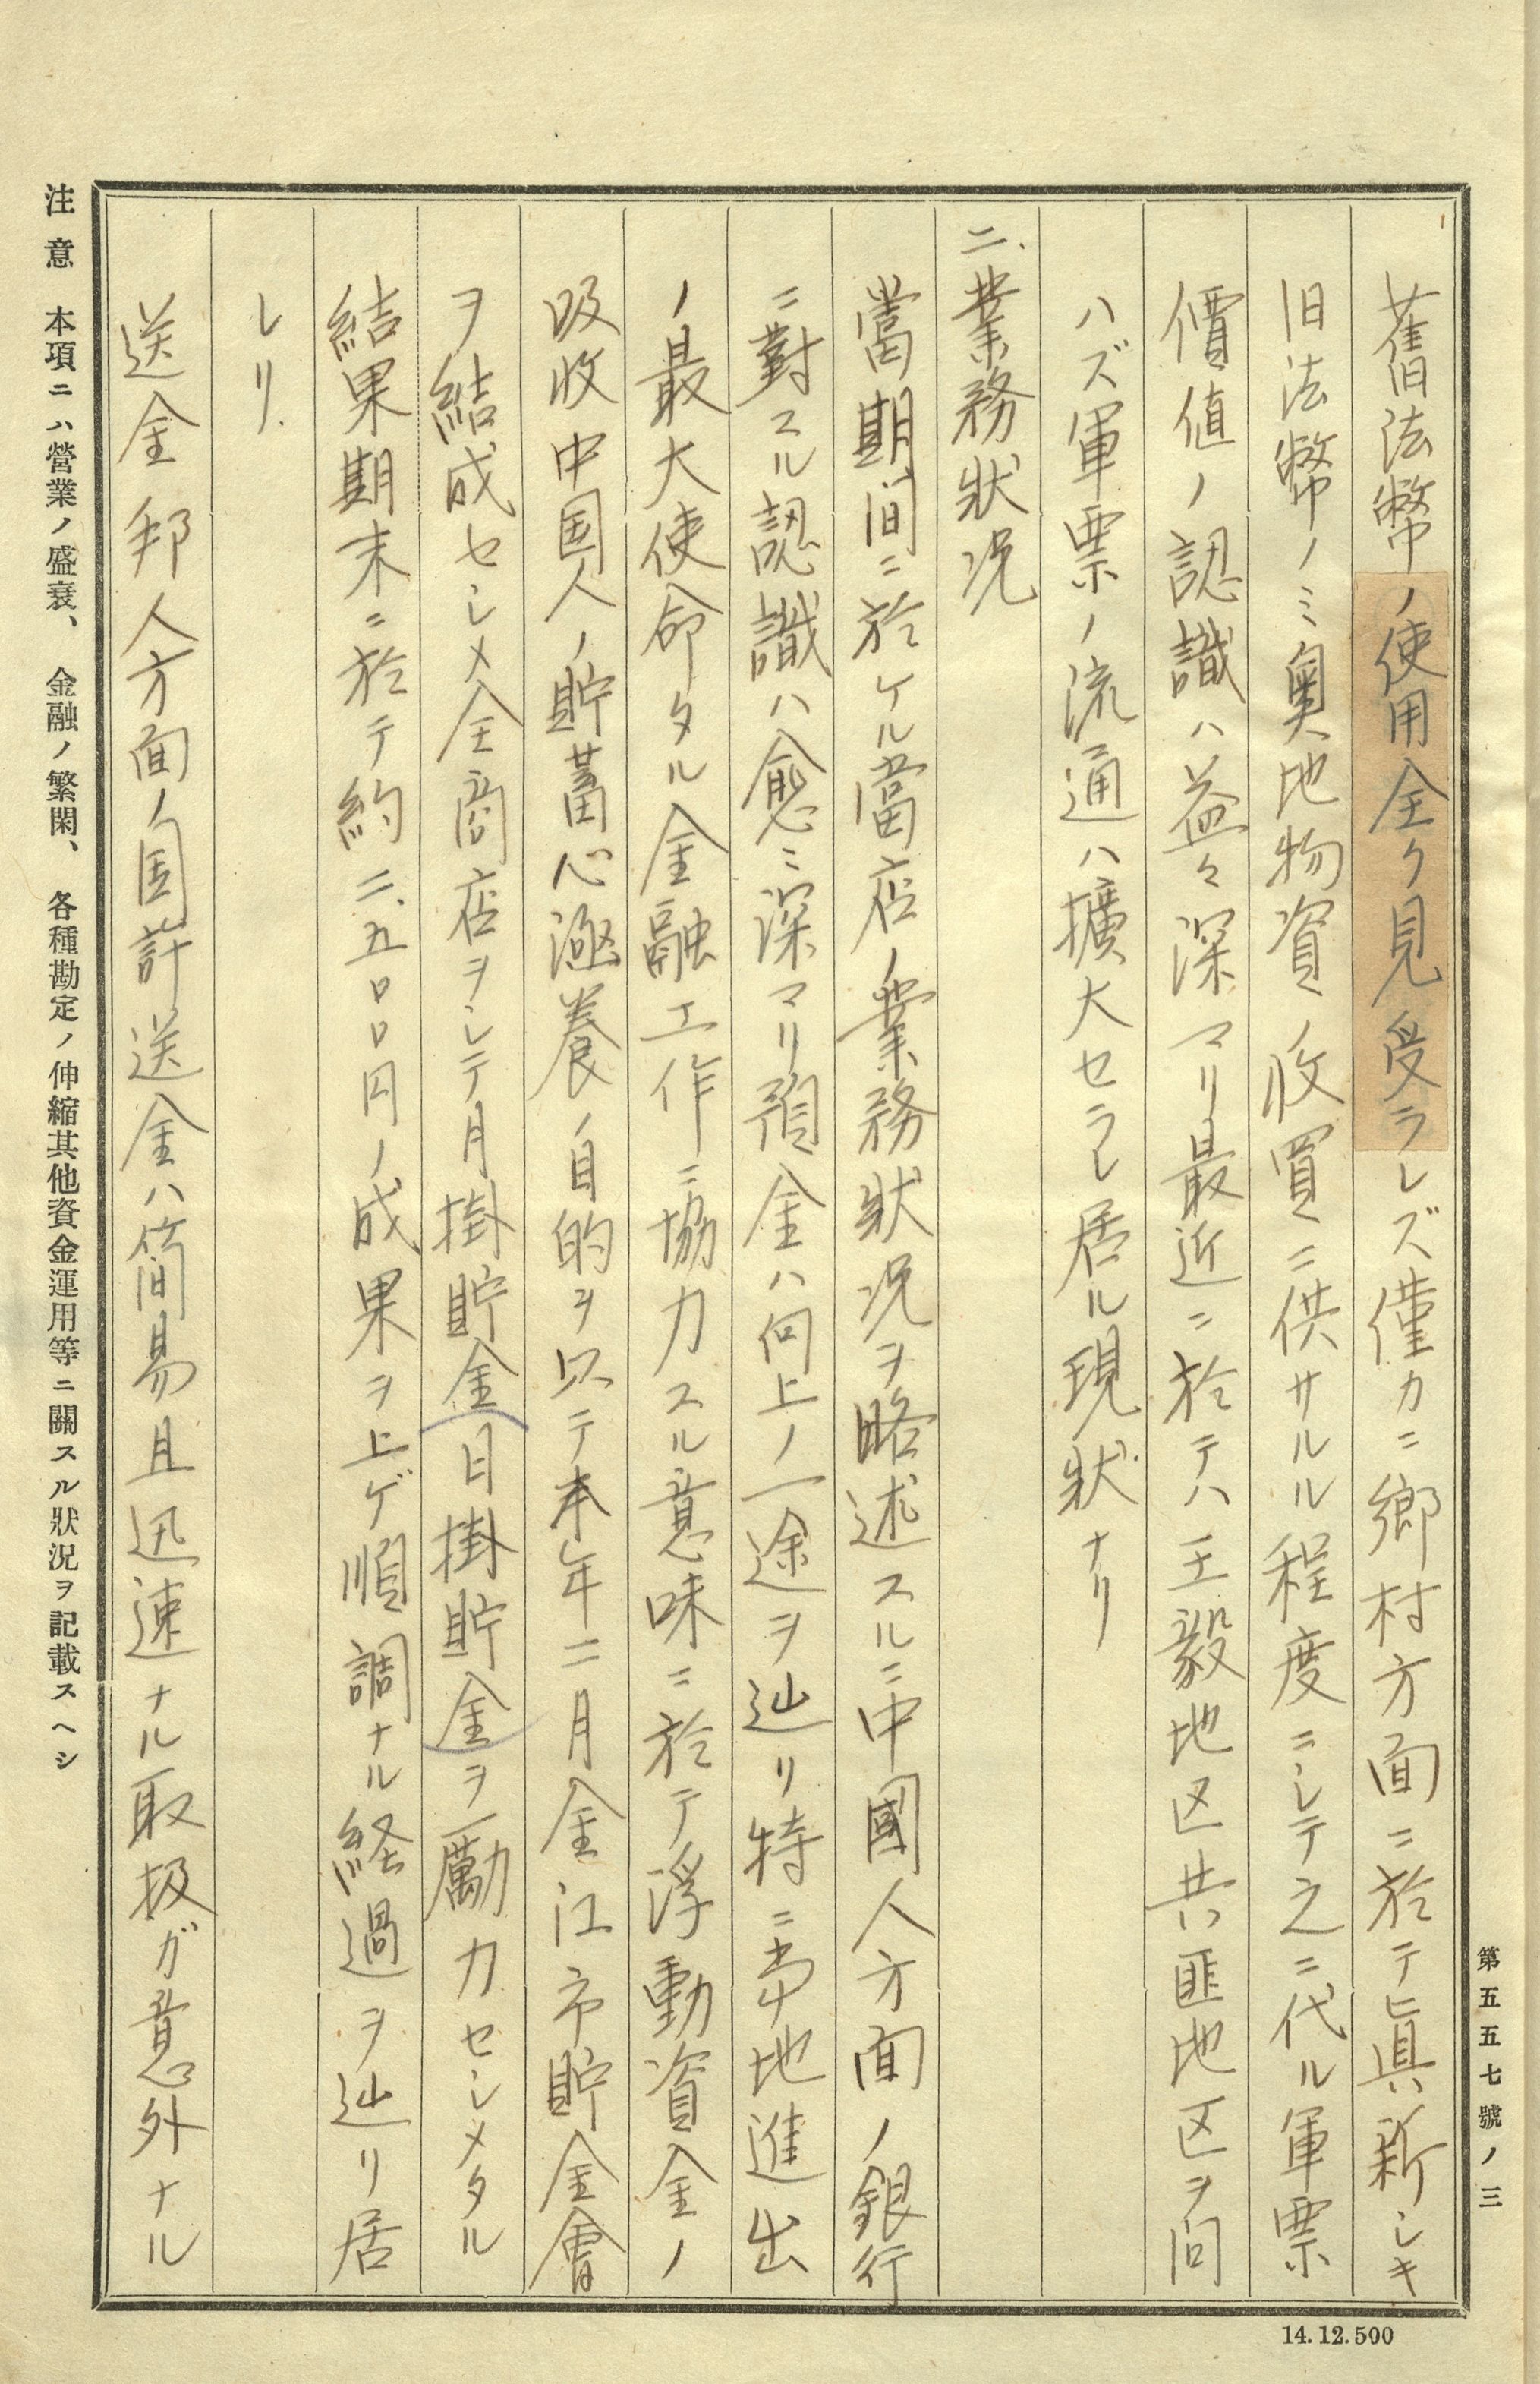 第五五七號ノ三
舊法幣ノ使用全ク見受ラレズ僅カニ鄉村方面ニ於テ眞新シキ
旧法幣ノミ奥地物資ノ收買ニ供サルル程度ニシテ之ニ代ル軍票
價値ノ認識ハ益々深マリ最近ニ於テハ王毅地区共匪地区ヲ问
ハズ軍票ノ流通ハ擴大セラレ居ル現狀ナリ
二、業務狀況
當期间ニ於ケル當店ノ業務狀況ヲ略述スルニ中國人方面ノ銀行
ニ對スル認識ハ愈ミ深マリ預金ハ向上ノ一途ヲ辿リ特ニ当地進出
ノ最大使命タル金融工作ニ協力スル意味ニ於テ浮動資金ノ
吸收中国人ノ貯蓄心涵養ノ目的ヲ以テ本年二月金江市貯金會
ヲ結成セシメ全商店ヲシテ月掛貯金日掛貯金ヲ励力セシメタル
結果期末ニ於テ約二、五〇〇円ノ成果ヲ上ゲ順調ナル経過ヲ辿リ居
レリ.
送金邦人方面ノ内地送金ハ简易且迅速ナル取扱ガ意外ナル
注意 本項ニハ營業ノ盛衰、金融ノ繁閑、各種勘定ノ伸縮其他資金運用等ニ關スル狀況ヲ記載スヘシ
14.12.500